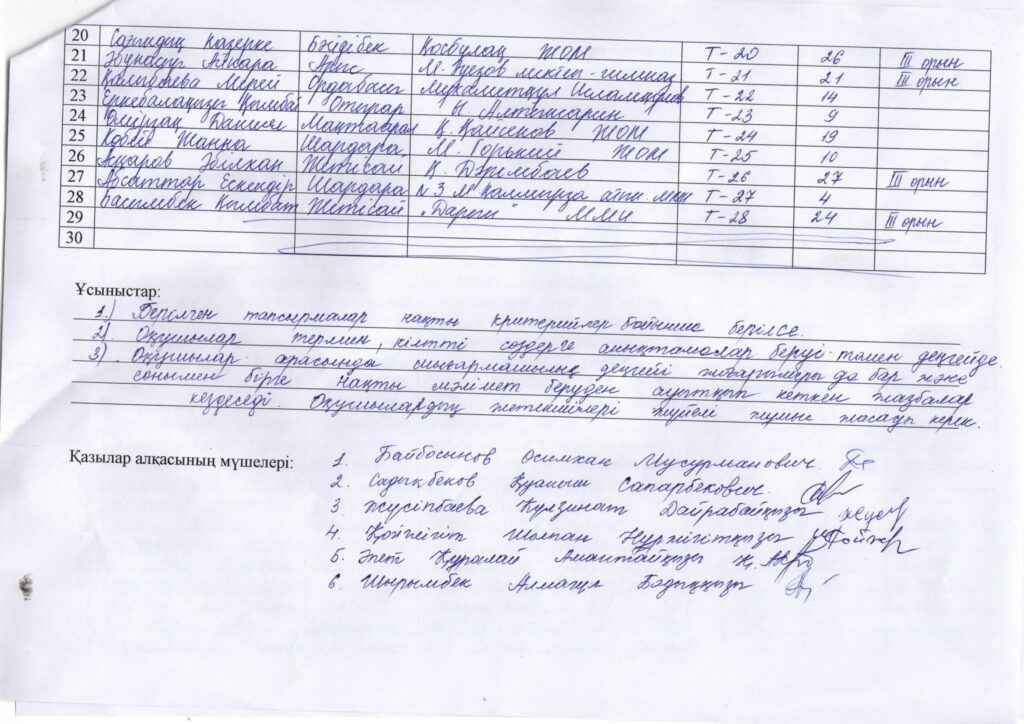 20 Сағындық Назерке Бәйдібек Қосбұлақ ЖОМ Т-20 26 III орын
21 Арыс М. Әуезов мектеп-гимназ Т-21 21 III орын
22 Мерей Ордабасы Т-22 14
23 Отырар Ы. Алтынсарин Т-23 9
24 Даниял Мақтаарал Қ. Қайсенов ЖОМ Т-24 19
25 Көбей Жанна Шардара М. Горький ЖОМ Т-25 10
26 Асқаров Әбілхан Жетісай К. Т-26 27 III орын
27 Абсаттар Ескендір Шардара N3 М. атын. Т-27 4
28 Қымбат Жетісай "Дарын" ММИ Т-28 24 III орын
29
30
Ұсыныстар:
1.) Берілген тапсырмалар нақты критерийлер бойынша берілсе.
2). Оқушылар термин, кілтті сөздерге анықтамалар беруі төмен деңгейде.
3) Оқушылар арасында шығармашылық деңгейі жоғарылары да бар және
сонымен бірге нақты мәлімет беруден ауытқып кеткен жазбалар
кездеседі. Оқушылардың жетекшілері жүйелі жұмыс жасауы керек.
Қазылар алқасының мүшелері:
1. Байбосынов Осимхан Мусурманович
2. Садықбеков Қуаныш Сапарбекович.
3. Жүсіпбаева Күлзинат Дайрабайқызы
4. Қойжігіт Шолпан Нұржігітқызы
5. Әпет Құралай Амантайқызы
6. Шырымбек Алмагүл